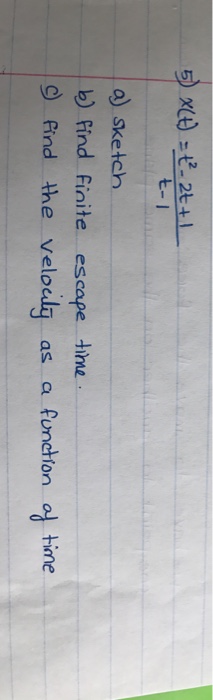 5) x(t) = t² - 2t + 1
t - 1
a) sketch
b) find finite escape time.
c) find the velocity as a function of time